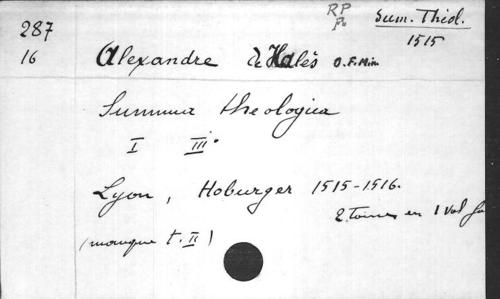 RP Sum. Théol.
287 Po 1515
16 Alexandre de Halès O.F.Min
Summa theologica
I III.
Lyon, Koburger 1515-1516.
2 tomes en 1 Vol fo
(manque t. II)